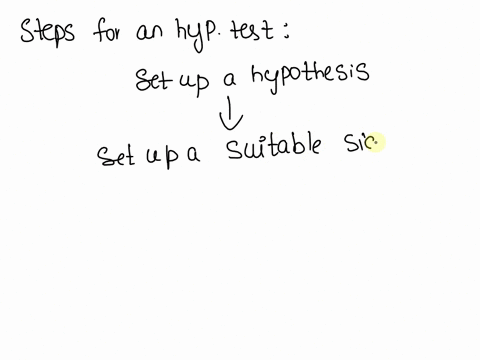 Steps for an hyp. test :
Set up a hypothesis
↓
Set up a suitable sic